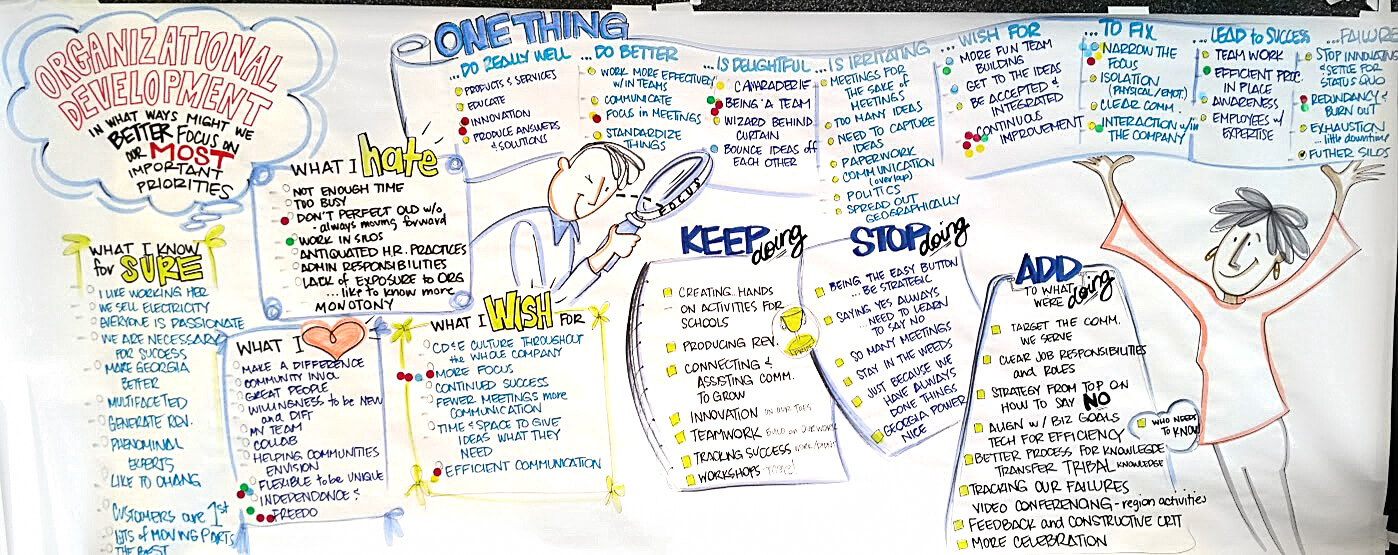 ORGANIZATIONAL
DEVELOPMENT
IN WHAT WAYS MIGHT WE
BETTER FOCUS ON
OUR MOST
IMPORTANT
PRIORITIES
ONE THING
...DO REALLY WELL
PRODUCTS & SERVICES
EDUCATE
INNOVATION
PRODUCE ANSWERS
& SOLUTIONS
...DO BETTER
WORK MORE EFFECTIVELY
W/IN TEAMS
COMMUNICATE
FOCUS IN MEETINGS
STANDARDIZE
THINGS
...IS DELIGHTFUL
CAMRADERIE
BEING A TEAM
WIZARD BEHIND
CURTAIN
BOUNCE IDEAS off
EACH OTHER
...IS IRRITATING
MEETINGS FOR
THE SAKE of
MEETINGS
TOO MANY IDEAS
NEED TO CAPTURE
IDEAS
PAPERWORK
COMMUNICATION
(overlap)
POLITICS
SPREAD OUT
GEOGRAPHICALLY
...WISH FOR
MORE FUN TEAM
BUILDING
GET TO THE IDEAS
BE ACCEPTED &
INTEGRATED
CONTINUOUS
IMPROVEMENT
...TO FIX
NARROW THE
FOCUS
ISOLATION
(PHYSICAL/EMOT.)
CLEAR COMM.
INTERACTION w/in
THE COMPANY
...LEAD to SUCCESS
TEAM WORK
EFFICIENT PROC.
IN PLACE
AWARENESS
EMPLOYEES w/
EXPERTISE
...FAILURE
STOP INNOVATING
& SETTLE FOR
STATUS QUO
REDUNDANCY &
BURN OUT
EXHAUSTION
...little downtime
FUTHER SILOS
WHAT I hate
NOT ENOUGH TIME
TOO BUSY
DON'T PERFECT OLD w/o
- always moving forward
WORK IN SILOS
ANTIQUATED H.R. PRACTICES
ADMIN RESPONSIBILITIES
LACK of EXPOSURE to ORG
...like to know more
MONOTONY
FOCUS
WHAT I KNOW
for SURE
I LIKE WORKING HER
WE SELL ELECTRICITY
EVERYONE IS PASSIONATE
WE ARE NECESSARY
FOR SUCCESS
MAKE GEORGIA
BETTER
MULTIFACETED
GENERATE REV.
PHENOMINAL
EXPERTS
LIKE TO CHANG
CUSTOMERS are 1st
LOTS of MOVING PARTS
THE BEST
WHAT I
MAKE A DIFFERENCE
COMMUNITY INVOL
GREAT PEOPLE
WILLINGNESS to be NEW
and DIFF
MY TEAM
COLLAB
HELPING COMMUNITIES
ENVISION
FLEXIBLE to be UNIQUE
INDEPENDANCE &
FREEDO
WHAT I WISH FOR
CD&E CULTURE THROUGHOUT
the WHOLE COMPANY
MORE FOCUS
CONTINUED SUCCESS
FEWER MEETINGS more
COMMUNICATION
TIME & SPACE TO GIVE
IDEAS WHAT THEY
NEED
EFFICIENT COMMUNICATION
KEEP doing
CREATING HANDS
ON ACTIVITIES FOR
SCHOOLS
PRODUCING REV.
CONNECTING &
ASSISTING COMM.
TO GROW
INNOVATION IN OUR
TEAMWORK BUILD on OUR WORK
TRACKING SUCCESS
WORKSHOPS
STOP doing
BEING THE EASY BUTTON
...BE STRATEGIC
SAYING YES ALWAYS
...NEED to LEARN
TO SAY NO
SO MANY MEETINGS
STAY IN THE WEEDS
JUST BECAUSE WE
HAVE ALWAYS
DONE THINGS
GEORGIA POWER
NICE
ADD
TO WHAT
WE'RE doing
TARGET THE COMM.
WE SERVE
CLEAR JOB RESPONSIBILITIES
and ROLES
STRATEGY FROM TOP ON
HOW TO SAY NO
ALIGN w/ BIZ GOALS
TECH FOR EFFICIENCY
BETTER PROCESS FOR KNOWLEGDE
TRANSFER TRIBAL KNOWLEDGE
TRACKING OUR FAILURES
VIDEO CONFERENCING - region activities
FEEDBACK and CONSTRUCTIVE CRIT
MORE CELEBRATION
WHO NEEDS
TO KNOW